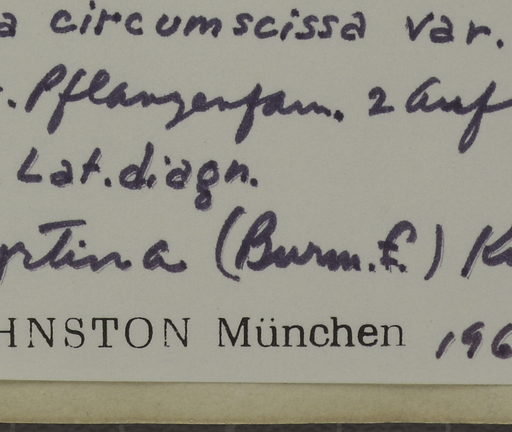 a circumscissa var.
. Pflanzenfam. 2 Auf
Lat. diagn.
yrtina (Burm.f.) K
HNSTON München 196